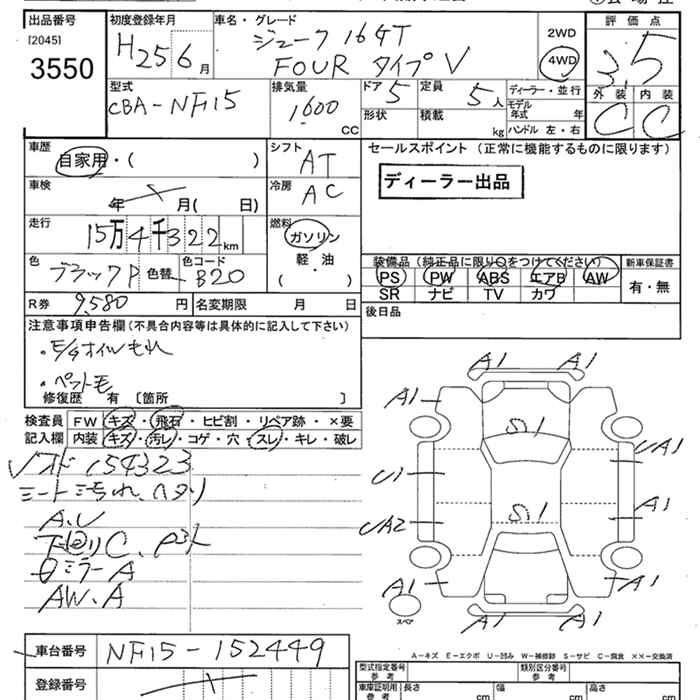 出品番号
[2045]
3550
初度登録年月
H25 6月
車名・グレード
ジューク 16GT
FOUR タイプV
2WD
4WD
評価点
3.5
外装 内装
C C
型式
CBA-NF15
排気量
1600
CC
ドア 5
定員 5人
形状
積載 kg
ディーラー・並行
モデル年式 年
ハンドル 左・右
車歴
自家用・( )
シフト
AT
車検
年 月( 日)
冷房
AC
走行
15万4千322km
燃料
ガソリン
軽・油
( )
色
ブラックP
色替
色コード
B20
R券 9,580円
名変期限 月 日
セールスポイント (正常に機能するものに限ります)
ディーラー出品
装備品 (純正品に限り○をつけてください)
PS PW ABS エアB AW
SR ナビ TV カワ
新車保証書
有・無
後日品
注意事項申告欄(不具合内容等は具体的に記入して下さい)
・E/Gオイルもれ
・ペット毛
修復歴 有 〔箇所 〕
検査員記入欄
FW キズ・飛石・ヒビ割・リペア跡・×要
内装 キズ・汚レ・コゲ・穴・スレ・キレ・破レ
154323
シート汚れ、ヘタリ
A.U
下回りC、
ミラーA
AW.A
A1 A1
A1
S.1
UA1
U1
A1
UA2
S.1
A1
A1
A1 A1
スペア
A-キズ E-エクボ U-凹み W-補修跡 S-サビ C-腐食 ××-交換済
車台番号
NF15-152449
登録番号
型式指定番号
参考
類別区分番号
参考
車庫証明用
参考
長さ cm
幅 cm
高さ cm